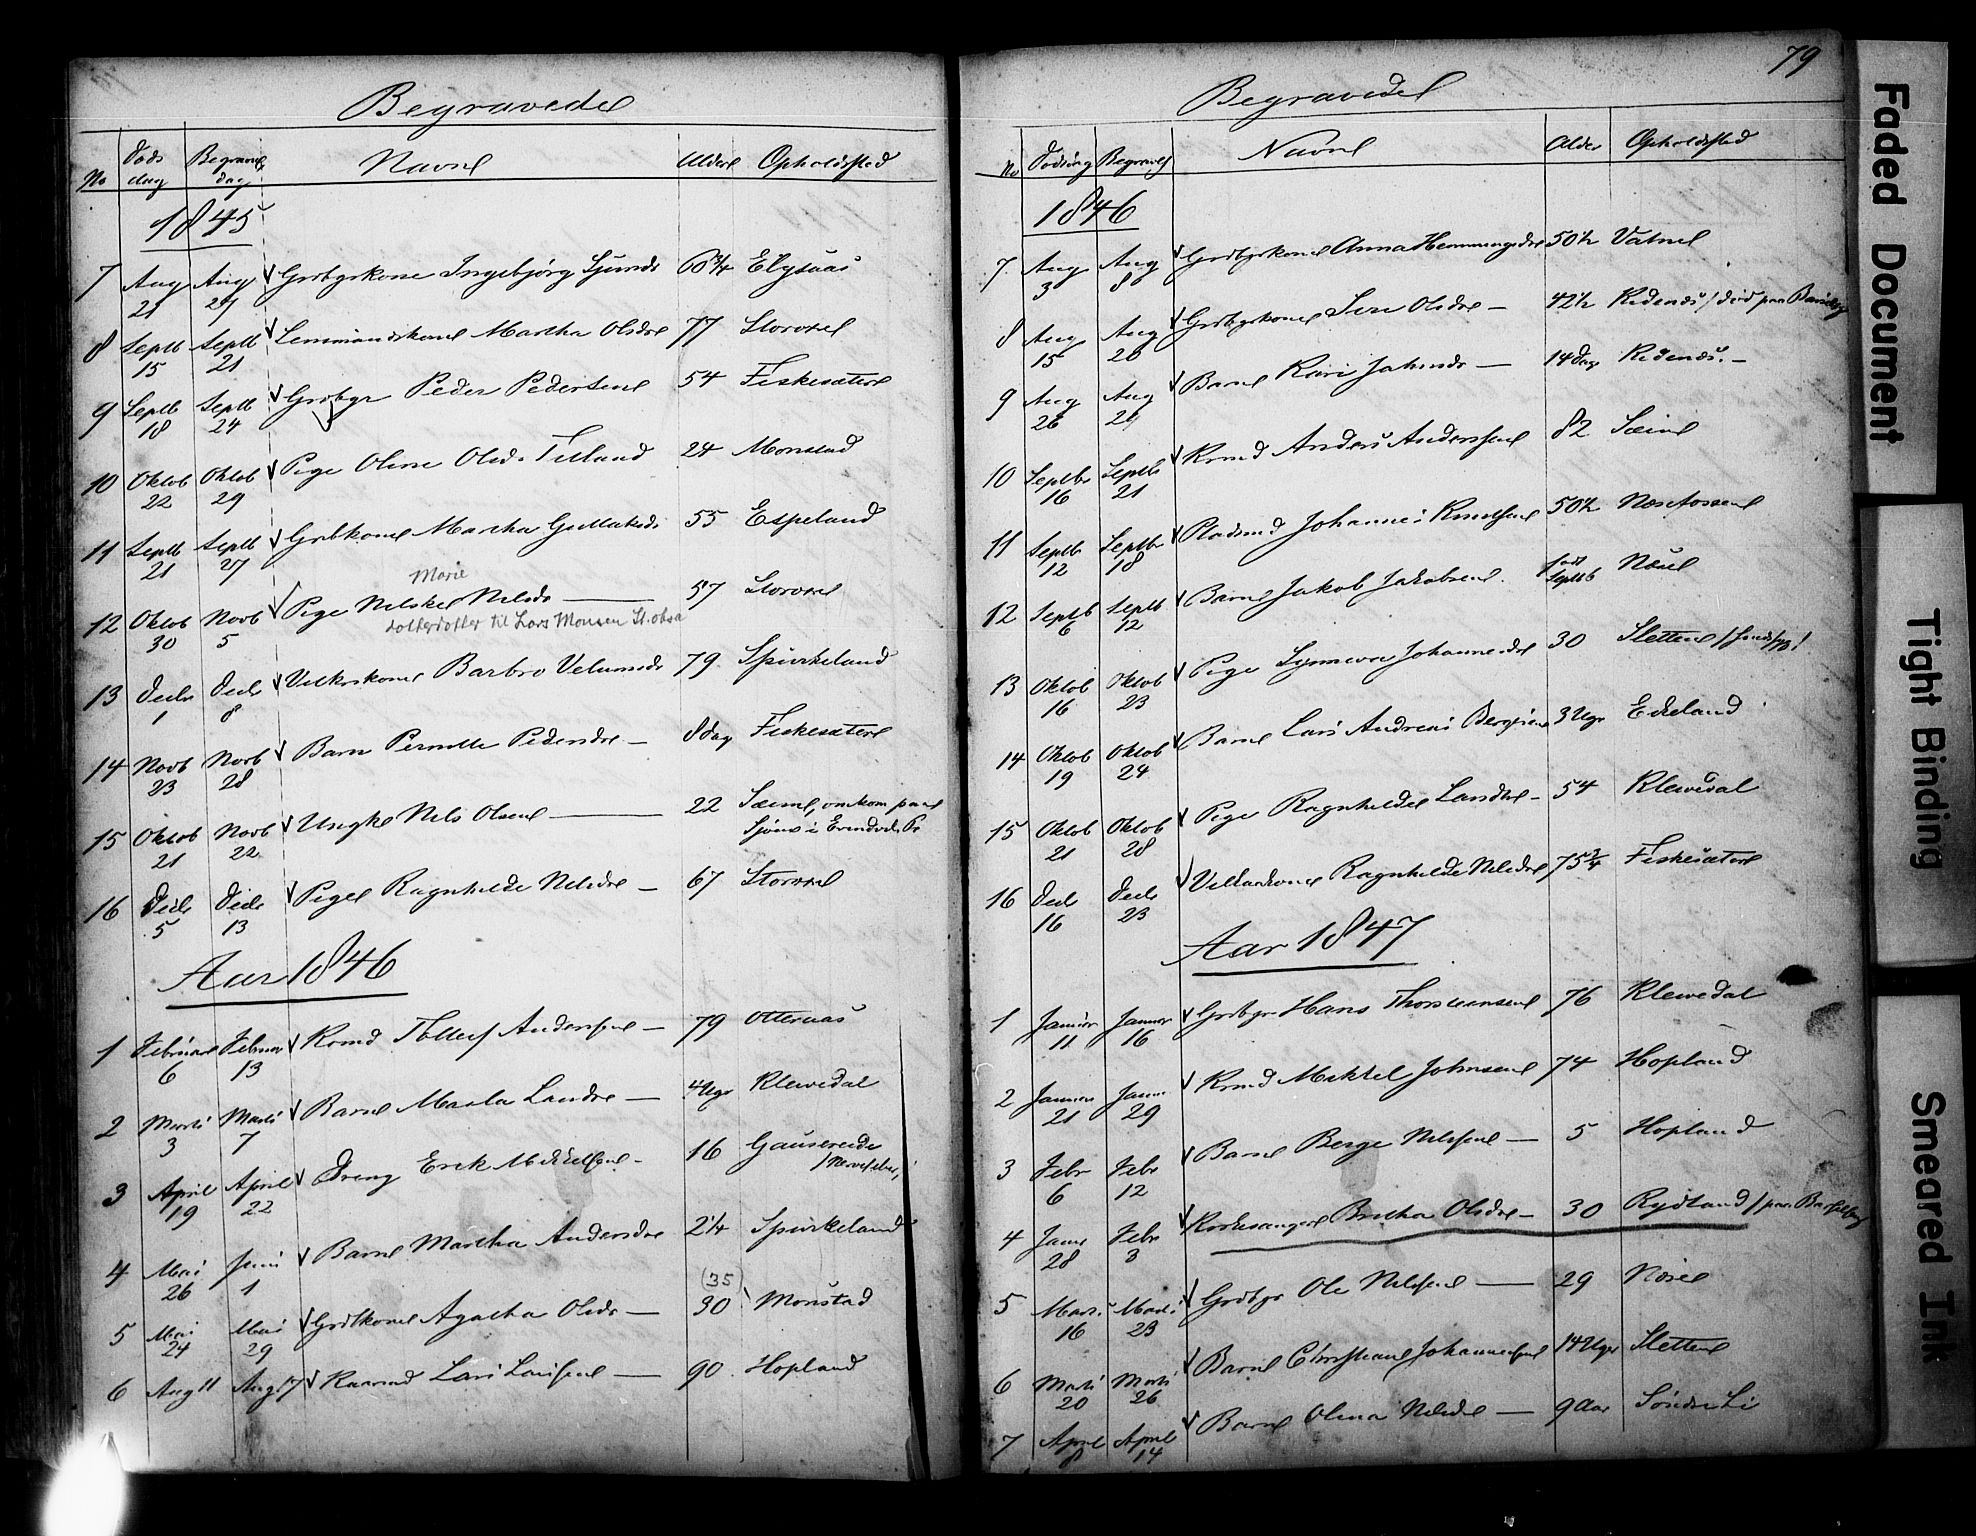 Begravede
No Døds dag Begravel dag Navne Alder Opholdssted
1845
7 Aug 21 Aug 29 Grdbgrkone Ingebjørg Sjursd 60¾ Elysaas
8 Septb 15 Septb 21 Lensmandskone Martha Olsdre 77 Storøxel
9 Septb 18 Septb 24 Grdbgr Peder Pedersen 54 Fiskesætere
10 Oktob 22 Oktob 29 Pige Oline Olsd. Titland 24 Monstad
11 Septb 21 Septb 27 Grdbkone Martha Gullaksd 55 Espeland
Marie
12 Oktob 30 Novb 5 Pige Nelske Nelsdr 57 Storøxel
dotterdotter til Lars Monsen St.oksa
13 Decbr 1 Decb 8 Velkrskone Barbro Velumsdr 79 Spirkeland
14 Novb 23 Novb 28 Barn Pernelle Pedersdre 8 dag Fiskesætere
15 Oktob 21 Novb 22 Ungkl Nels Olsen 22 Sæime, omkom paa
Sjøen i Evendvik Pr
16 Decb 5 Decb 13 Pige Ragnhilde Nelsdre 67 Storøxel
Aar 1846
1 Februar 6 Februar 13 Kaarmd Tollef Andersen 79 Otteraas
2 Marti 3 Marti 7 Barn Marta Landre 4 Uger Klevedal
3 April 19 April 22 Dreng Erik Mikkelsen 16 Gausereide
/Nervefeber/
4 Mai 26 Juni 1 Barn Martha Andersdre 2¼ Spirkeland
(35)
5 Mai 24 Mai 29 Grdbkone Agatha Olsdr 30 Monstad
6 Aug 11 Aug 17 Kaarmd Lars Larsen 90 Hopland
79
Begravede
No Dødsdag Begravels Navne Alder Opholdssted
1846
7 Aug 3 Aug 8 Grdbgrkone Anna Hemmingsdre 50½ Vatne
8 Aug 15 Aug 20 Grdbgrkone Siri Olsdre 42½ Kidenæs / død paa Barselseng
9 Aug 26 Aug 29 Barn Kari Johnsdr 14 dage Kidenæs.
10 Septbr 16 Septb 21 Kaarmd Anders Andersen 82 Sæim
11 Septb 12 Septbr 18 Pladsmd Johannes Knudsen 50½ Næsefossen
12 Septb 6 Septb 12 Barn Jakob Jakobsen født Septb Næse
13 Oktob 16 Oktob 23 Pige Synneva Johannesdre 30 Sletten
14 Oktob 19 Oktob 24 Barn Lars Andreas Bergesen 3 Uger Eikeland
15 Oktob 21 Oktob 28 Pige Ragnhilde Landre 54 Klevedal
16 Decb 16 Decb 23 Velkarkone Ragnhilde Nelsdre 75¾ Fiskesætere
Aar 1847
1 Januar 11 Januar 16 Grdbgr Hans Thorsteensen 76 Klevedal
2 Januar 21 Januar 29 Kaarmd Mikkel Johnsen 74 Hopland
3 Febr 6 Febr 12 Barn Berge Nelsen 5 Hopland
4 Janr 28 Febr 3 Kirkesanger Britha Olsdre 30 Rydland / paa Barselseng
5 Marti 16 Marti 23 Grdbgr Ole Nelsen 29 Næse
6 Marti 20 Marti 26 Barn Christiane Johannesen 14 Uger Sletten
7 April 8 April 14 Barn Olina Nelsdre 9 Aar Søndre Li
Faded Document
Tight Binding
Smeared Ink